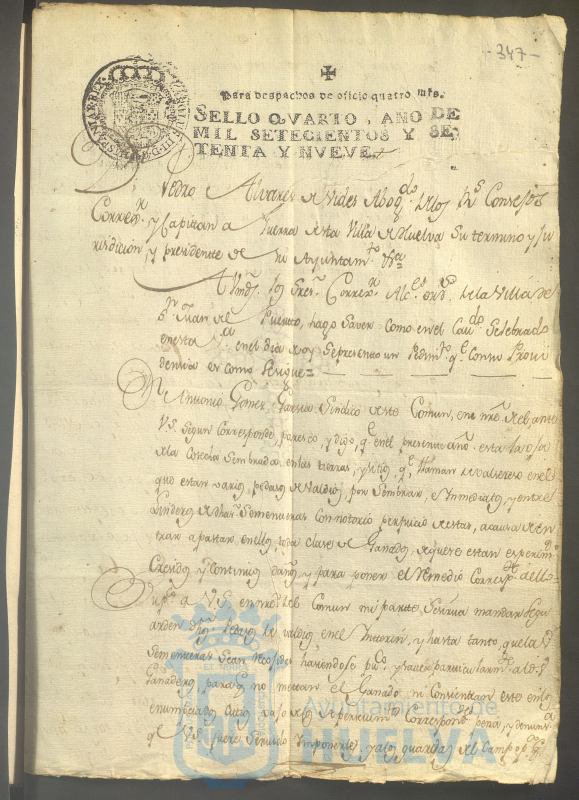 -347-
Para despachos de oficio quatro mrs.
SELLO QVARTO, AÑO DE
MIL SETECIENTOS Y SE-
TENTA Y NVEVE.
Pedro Alvares de Vides Abogdo. de los Rs. Consejos
Correxr. y Capitan a Guerra desta Villa de Huelva Su termino y Ju
risdicion, y presidente de su Ayuntamto. &a
A Vmds. los Sres. Correxr. Alces. ordios. de la Villa de
Sn. Juan del Puerto, hago Saver como en el Cavdo. Selebrado
en esta Va. en el dia de oy Sepresento un Pedimto. qe. con su Provi
dencia es como Sesigue=
Antonio Gomez Garcia Sindico deste Comun, en nre. del, ante
V.S. Segun corresponde, paresco, y digo, qe. en el presente año. esta la oja
de la Cosecha Sembrada, en las tierras, y sitios, qe. llaman de Valsereso en el
que estan varios pedasos de Valdio, por Sembrar, e Ynmediatos, y entre
Linderos de dhas. Sementeras con notorio perjuicio destas, a causa de en
trar a pastar en ellos, toda clase de Ganados, de que se estan esperimdo.
Cresidos y Continuos daños, y para poner el remedio Correspte. dello=
Supco. a V.S. en nre. del Comun mi parte, Se sirva mandar Segu
arden dhos. Pedasos de valdios en el Ynterin, y hasta tanto, que las
Sementeras Sean recojidas haciendose puco. y Saver particularmte. a los
Ganaderos, para qe. no metan el Ganado, ni Consientan este en los
enumpciados citios vajo de los apercivimtos. Correspondtes. pena, y denuna.
qe. V.S. fuere Servido Ymponerle, y a los guardas del Campo
Ayuntamiento de
HUELVA